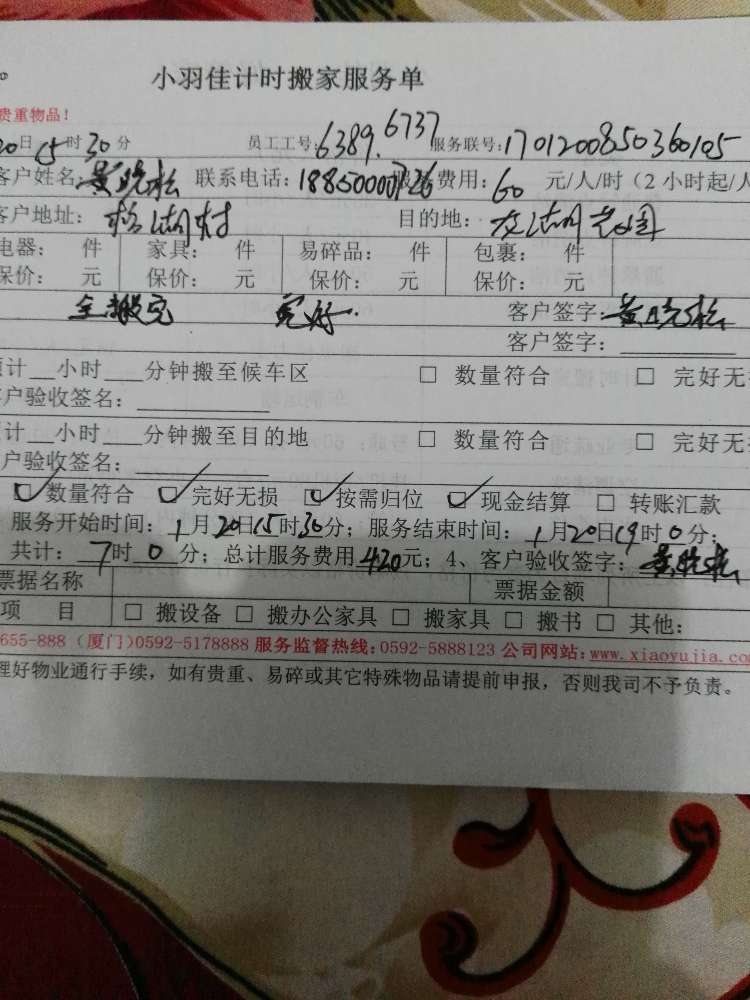 小羽佳计时搬家服务单
贵重物品!
20日15时30分 员工工号:6389.6737 服务联号:1701200850360105
客户姓名:黄晓松 联系电话:18850000726 费用:60 元/人/时(2小时起/人
客户地址: 村 目的地: 花园
电器: 件 家具: 件 易碎品: 件 包裹: 件
保价: 元 保价: 元 保价: 元 保价: 元
全搬完 完好. 客户签字:黄晓松
客户签字:
计__小时___分钟搬至候车区 □ 数量符合 □ 完好无
户验收签名:
计__小时___分钟搬至目的地 □ 数量符合 □ 完好无
户验收签名:
☑数量符合 ☑完好无损 ☑按需归位 ☑现金结算 □ 转账汇款
服务开始时间:1月20日15时30分;服务结束时间:1月20日19时0分;
共计:7时0分;总计服务费用420元;4、客户验收签字:黄晓松
票据名称 票据金额
项 目 □ 搬设备 □ 搬办公家具 □ 搬家具 □ 搬书 □ 其他:
655-888(厦门)0592-5178888 服务监督热线:0592-5888123 公司网站:www.xiaoyujia.com
理好物业通行手续,如有贵重、易碎或其它特殊物品请提前申报,否则我司不予负责。